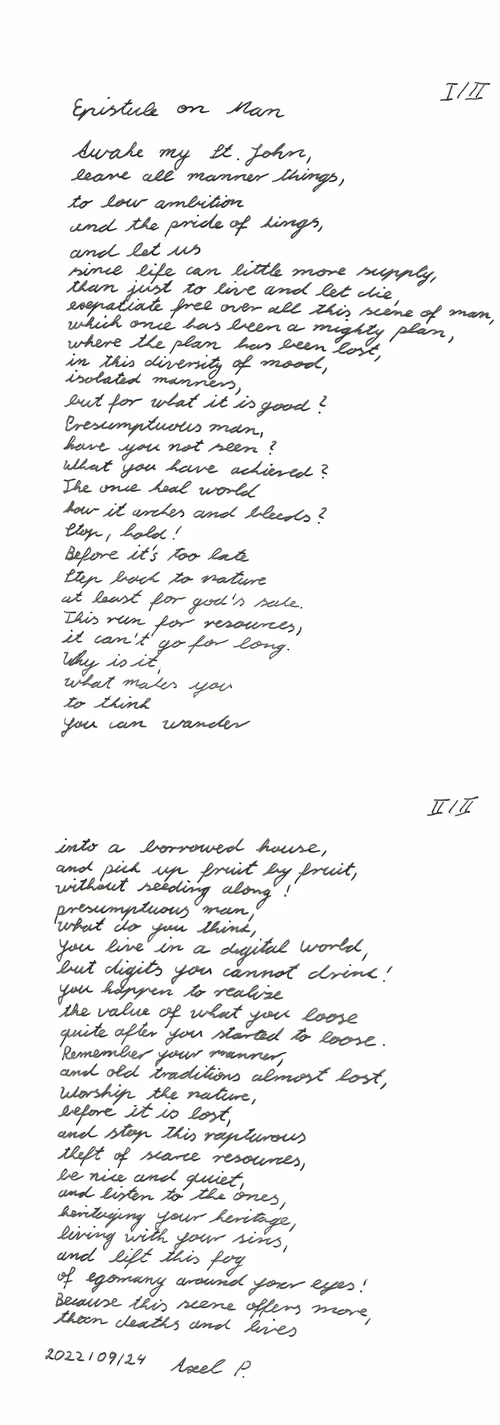 I/II
Epistule on Man
Awake my St. John,
leave all manner things,
to low ambition
and the pride of kings,
and let us
since life can little more supply,
than just to live and let die,
expatiate free over all this scene of man,
which once has been a mighty plan,
where the plan has been lost,
in this diversity of mood,
isolated manners,
but for what it is good?
Presumptuous man,
have you not seen?
What you have achieved?
The once heal world
how it arches and bleeds?
Stop, hold!
Before it's too late
Step back to nature
at least for god's sake.
This run for resources,
it can't go for long.
Why is it,
what makes you
to think
you can wander
II/II
into a borrowed house,
and pick up fruit by fruit,
without seeding along!
presumptuous man,
what do you think,
you live in a digital world,
but digits you cannot drink!
you happen to realize
the value of what you loose
quite after you started to loose.
Remember your manner,
and old traditions almost lost,
Worship the nature,
before it is lost,
and stop this rapturous
theft of scarce resources,
be nice and quiet,
and listen to the ones,
heritaging your heritage,
living with your sins,
and lift this fog
of egomany around your eyes!
Because this scene offers more,
than deaths and lives
2022/09/24 Axel P.